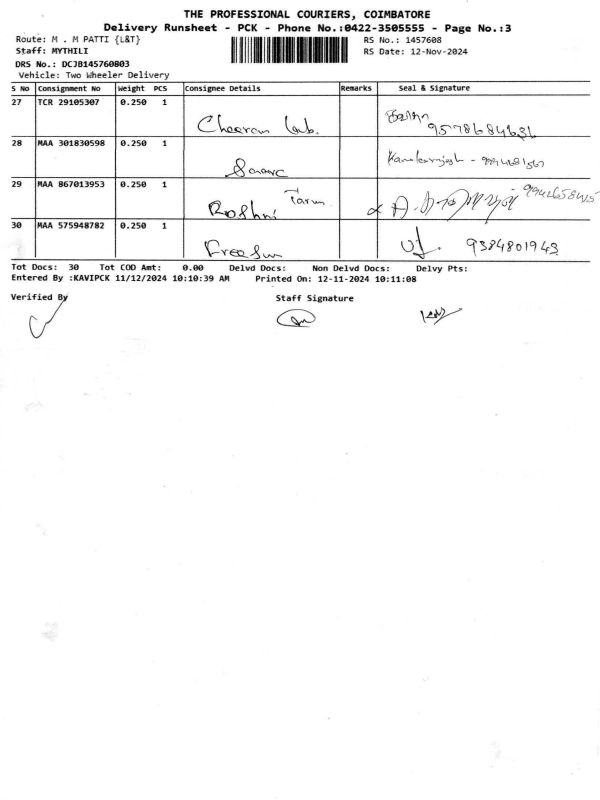 THE PROFESSIONAL COURIERS, COIMBATORE
Delivery Runsheet - PCK - Phone No.:0422-3505555 - Page No.:3
Route: M . M PATTI {L&T} RS No.: 1457608
Staff: MYTHILI RS Date: 12-Nov-2024
DRS No.: DCJB145760803
Vehicle: Two Wheeler Delivery
S No Consignment No Weight PCS Consignee Details Remarks Seal & Signature
27 TCR 29105307 0.250 1 Cheeran Lab. 9578684636
28 MAA 301830598 0.250 1
29 MAA 867013953 0.250 1 Roshni Tarun
30 MAA 575948782 0.250 1 Free Sun 9384801943
Tot Docs: 30 Tot COD Amt: 0.00 Delvd Docs: Non Delvd Docs: Delvy Pts:
Entered By :KAVIPCK 11/12/2024 10:10:39 AM Printed On: 12-11-2024 10:11:08
Verified By Staff Signature